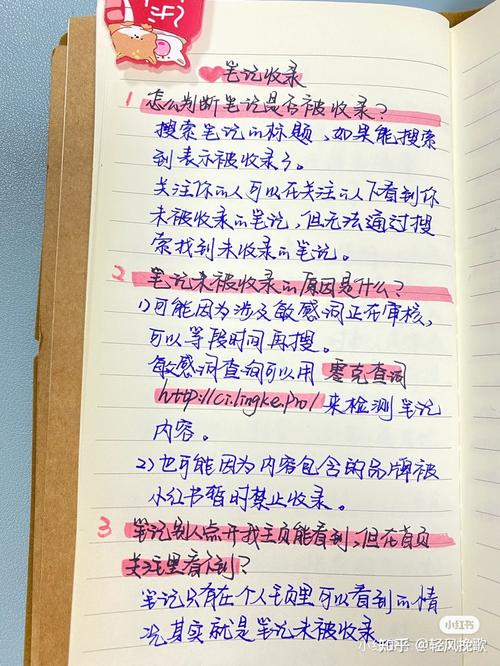 笔记收录
1 怎么判断笔记是否被收录?
搜索笔记的标题,如果能搜索
到表示被收录了。
关注你的人可以在关注的人下看到你
未被收录的笔记,但无法通过搜
索找到未收录的笔记。
2 笔记未被收录的原因是什么?
1)可能因为涉及敏感词正在审核,
可以等段时间再搜。
敏感词查询可以用 零克查词
http://ci.lingke.pro/ 来检测笔记
内容。
2)也可能因为内容包含的品牌被
小红书暂时禁止收录。
3 笔记别人点开我主页能看到,但在首页
关注里看不到?
笔记只有在个人主页里可以看到的情
况其实就是笔记未被收录
小红书
知乎 @轻风挽歌